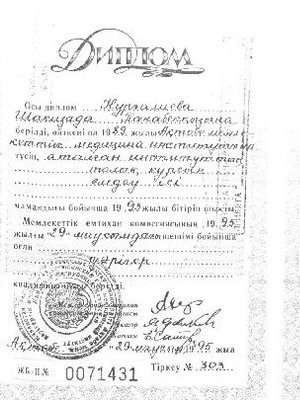 Диплом
Осы диплом Нурғалиева
Шаизада
берілді, өйткені ол 1989 жылы Ақтөбе мемле
кеттік медицина институтына
түсіп, аталған институттың
толық курсын
емдеу ісі
мамандығы бойынша 1995 жылы бітіріп шықты.
Мемлекеттік емтихан комиссиясының 1995
жылғы 29 маусымдағы шешімі бойынша
оған
дәрігер
квалификациясы берілді.
Ректор
Ақтөбе 29 маусым 1995 жыл
ЖБ-II № 0071431 Тіркеу № 303